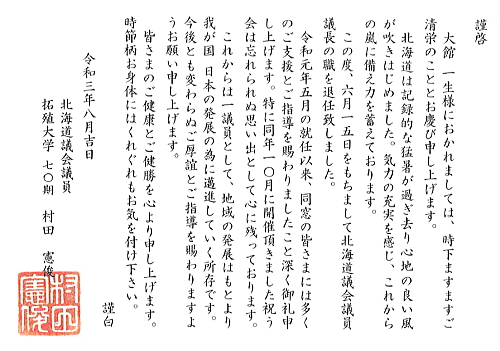 謹啓
大館 一生様におかれましては、時下ますますご
清栄のこととお慶び申し上げます。
北海道は記録的な猛暑が過ぎ去り心地の良い風
が吹きはじめました。気力の充実を感じ、これから
の嵐に備え力を蓄えております。
この度、六月一五日をもちまして北海道議会議員
議長の職を退任致しました。
令和元年五月の就任以来、同窓の皆さまには多く
のご支援とご指導を賜わりましたこと深く御礼申
し上げます。特に同年一〇月に開催頂きました祝う
会は忘れられぬ思い出として心に残っております。
これからは一議員として、地域の発展はもとより
我が国 日本の発展の為に邁進していく所存です。
今後とも変わらぬご厚誼とご指導を賜わりますよ
うお願い申し上げます。
皆さまのご健康とご健勝を心より申し上げます。
時節柄お身体にはくれぐれもお気を付け下さい。
謹白
令和三年八月吉日
北海道議会議員
拓殖大学 七〇期 村田 憲俊
村田
憲俊